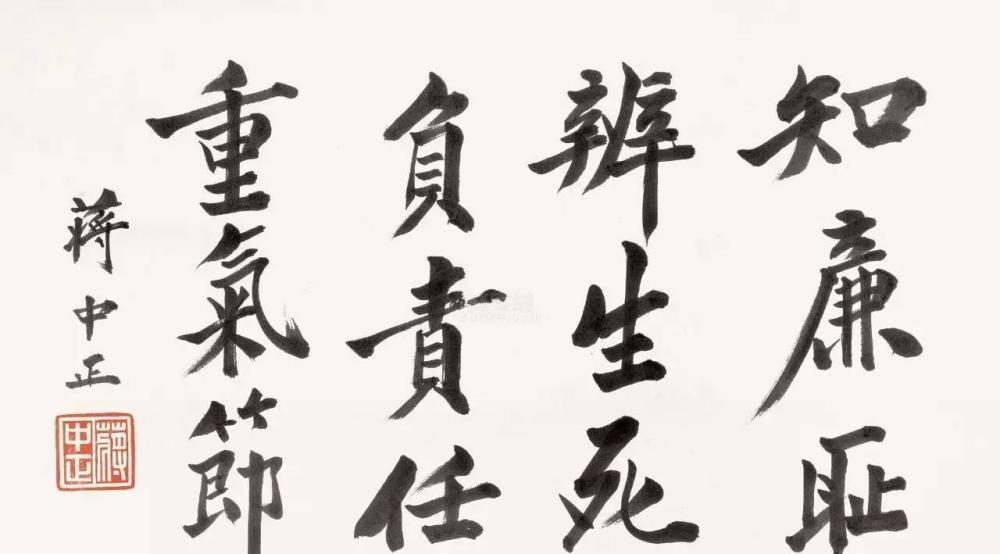 知廉耻
辨生死
負責任
重氣節
蔣中正
蔣中正